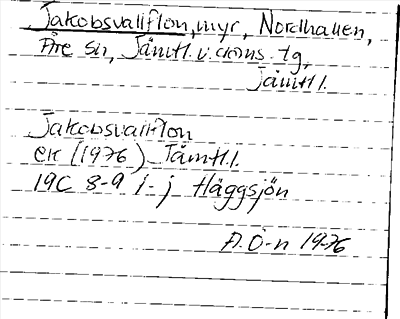 Jakobsvallflon, myr, Nordhallen,
Åre sn, Jämtl. v. doms. tg,
Jämtl.
Jakobsvallflon
ek (1976) Jämtl.
19C 8-9 i-j Häggsjön
A. Ö-n 1976